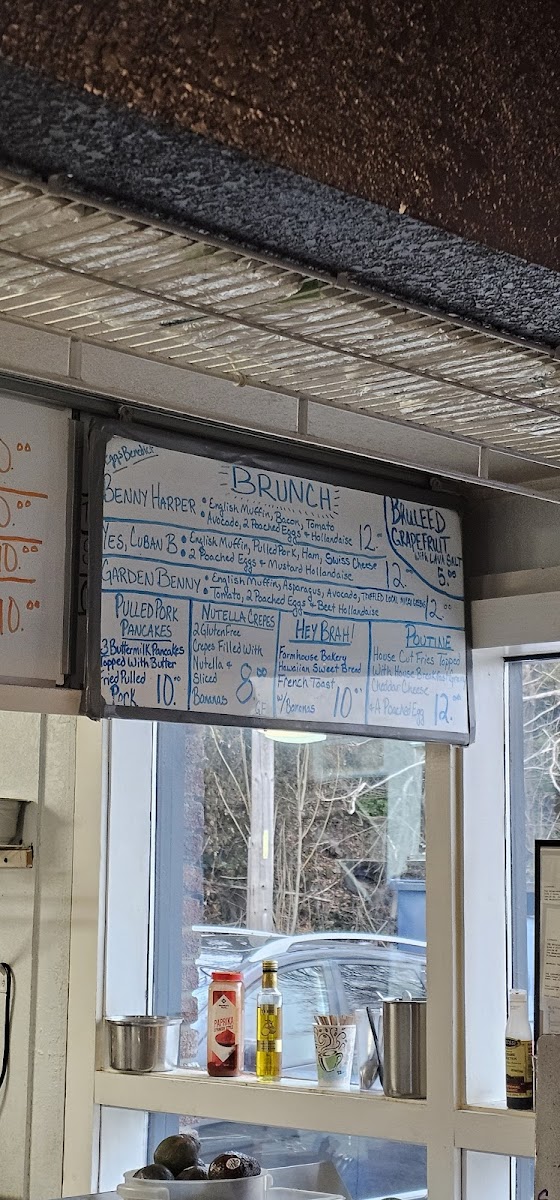 Eggs Benedict
BRUNCH
BENNY HARPER • English Muffin, Bacon, Tomato
Avocado, 2 Poached Eggs & Hollandaise 12.-
YES, CUBAN B • English Muffin, Pulled Pork, Ham, Swiss Cheese
2 Poached Eggs & Mustard Hollandaise 12.-
GARDEN BENNY • English Muffin, Asparagus, Avocado,
Tomato, 2 Poached Eggs & Beet Hollandaise 12.00
BRULEED
GRAPEFRUIT
WITH LAVA SALT
5.00
PULLED PORK
PANCAKES
3 Buttermilk Pancakes
Topped With Butter
Fried Pulled
Pork 10.00
NUTELLA CREPES
2 Gluten Free
Crepes Filled With
Nutella &
Sliced
Bananas 8.00
GF
HEY BRAH!
Farmhouse Bakery
Hawaiian Sweet Bread
French Toast
w/ Bananas 10.00
POUTINE
House Cut Fries Topped
With House
Cheddar Cheese
& A Poached Egg 12.
0.00
0.00
10.00
10.00
PAPRIKA